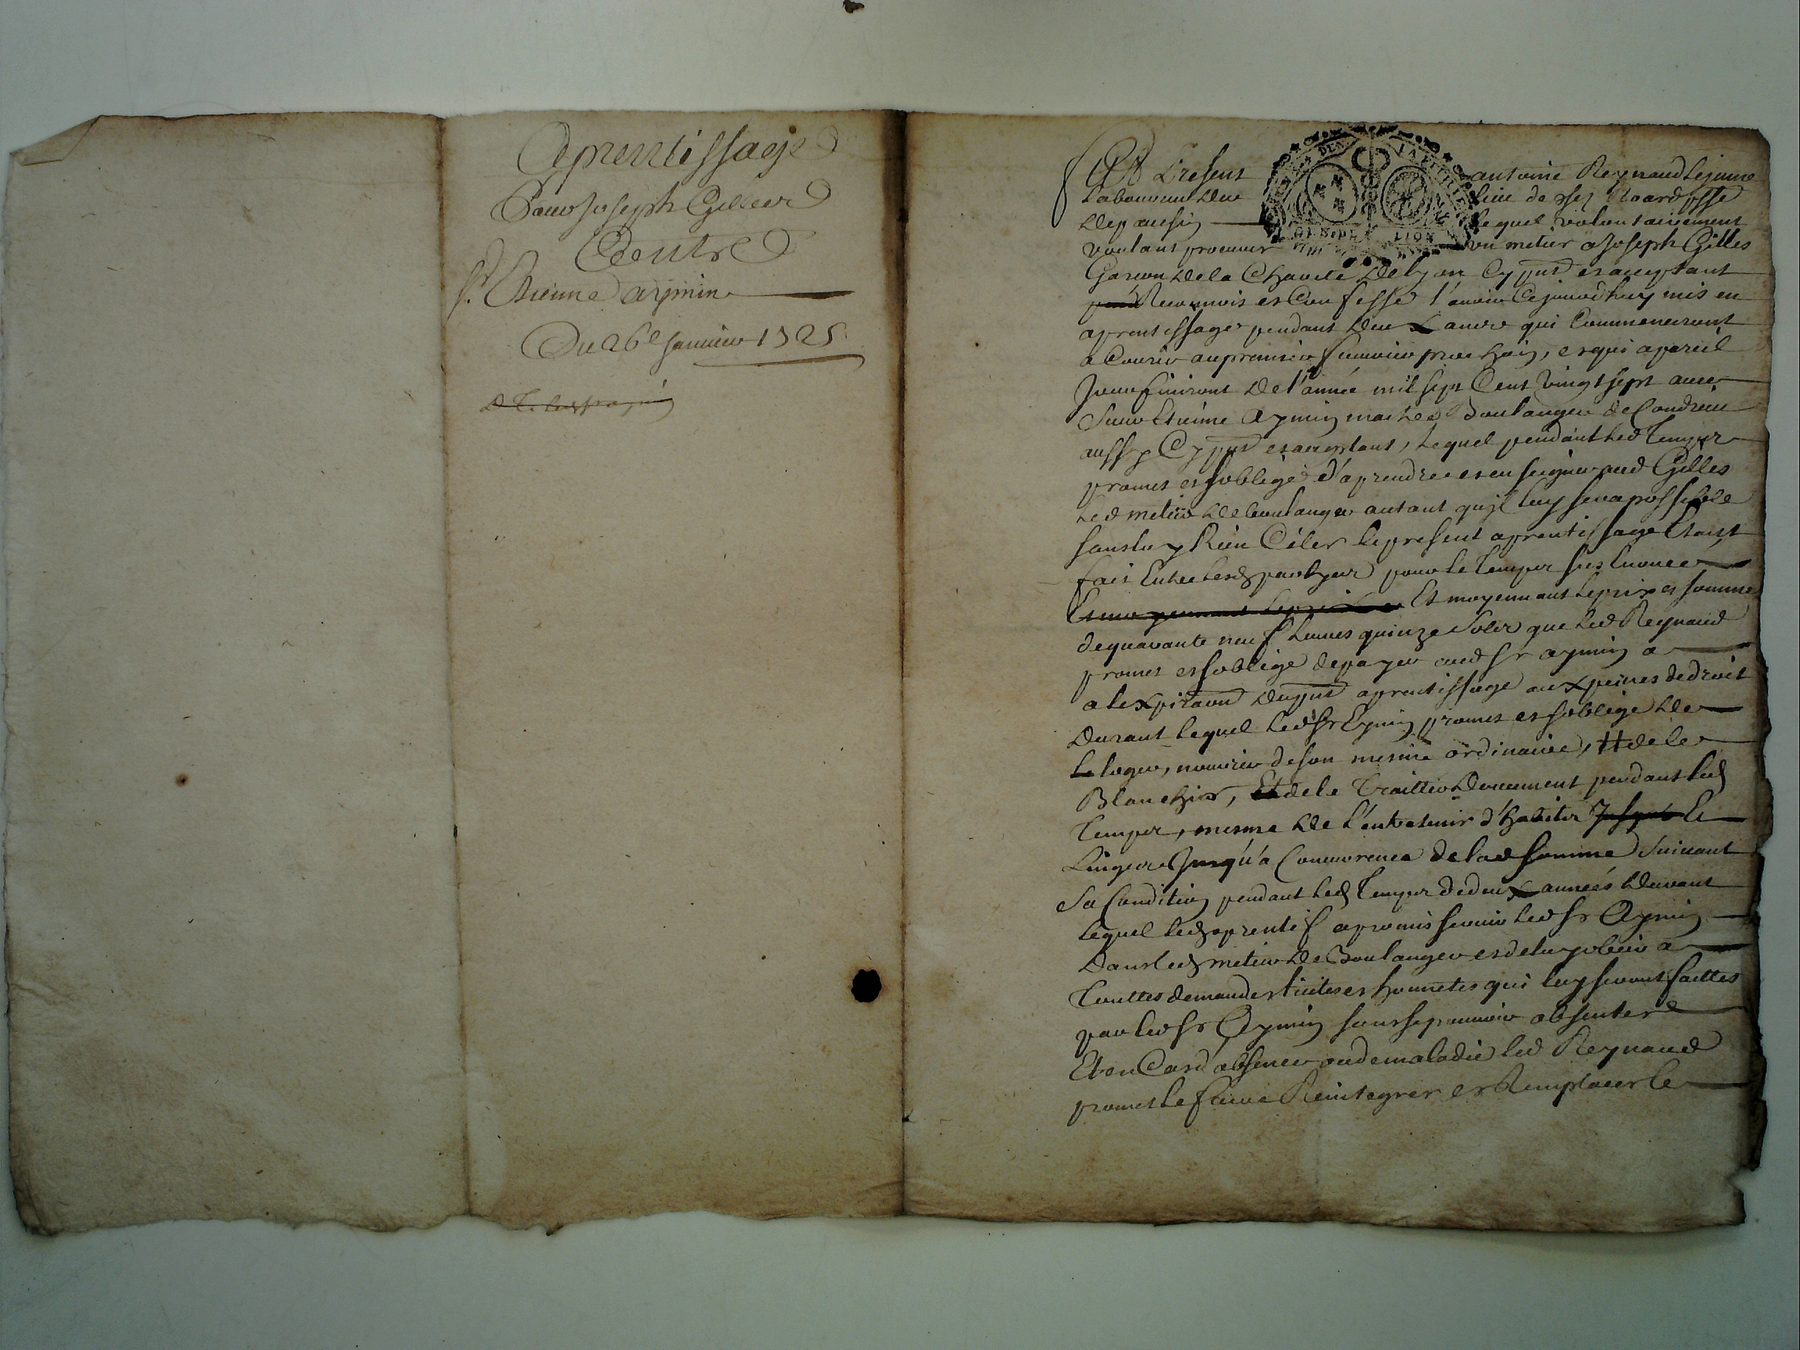 Aprentissage
Pour Joseph Gilles
Contre
Sr. Etienne Aymin
Du 26e Janvier 1725
Est Present antoine Reynaud lejeune
laboureur du lieu de
lequel volontairement
voulant procurer un metier a Joseph Gilles
Garcon de la Charité de Lyon Cy pnt et acceptant
Reconnois et Confesse l'avoir cejourdhuy mis en
aprentissage pendant deux années qui Commenceront
a Courir au premier fevrier prochain, et qui a pareil
Jour finiront de l'année mil sept Cent vingt sept avec
Sieur Etienne Aymin Boulanger de Condrieu
aussy Cy pnt et acceptant, lequel pendant led Temps
promet et soblige d'aprendre et enseigner aud Gilles
led metier de boulanger autant qu'il luy sera possible
sans luy Rien Céler le present aprentissage Etant
fait Entre lesd partyes pour le Temps sus Enoncé
Et moyennant le prix et somme
de quarante neuf livres quinze Sols que led Reynaud
promet et soblige de payer aud Sr aymin a
a lexpiraon du pnt aprentissage aux peines de droit
Durant lequel led Sr Eymin promet et soblige de
le loger, nourrir de son mesme ordinaire, # de le
Blanchir, Et de le Traitter doucement pendant led
Temps, mesme de l'entretenir d'habits Et
Linges Jusqu'a Concurrence de lad somme suivant
Sa Condition pendant led Temps de deux années Durant
lequel led aprentif a promis servir led Sr Aymin
Dans led metier de Boulanger et de luy obeir a
Touttes demandes licites et honnetes qui luy seront faittes
par led Sr Aymin sans se pouvoir absenter
Et en Cas d'absence ou de maladie led Reynaud
promet le faire Reintegrer et Remplacer le